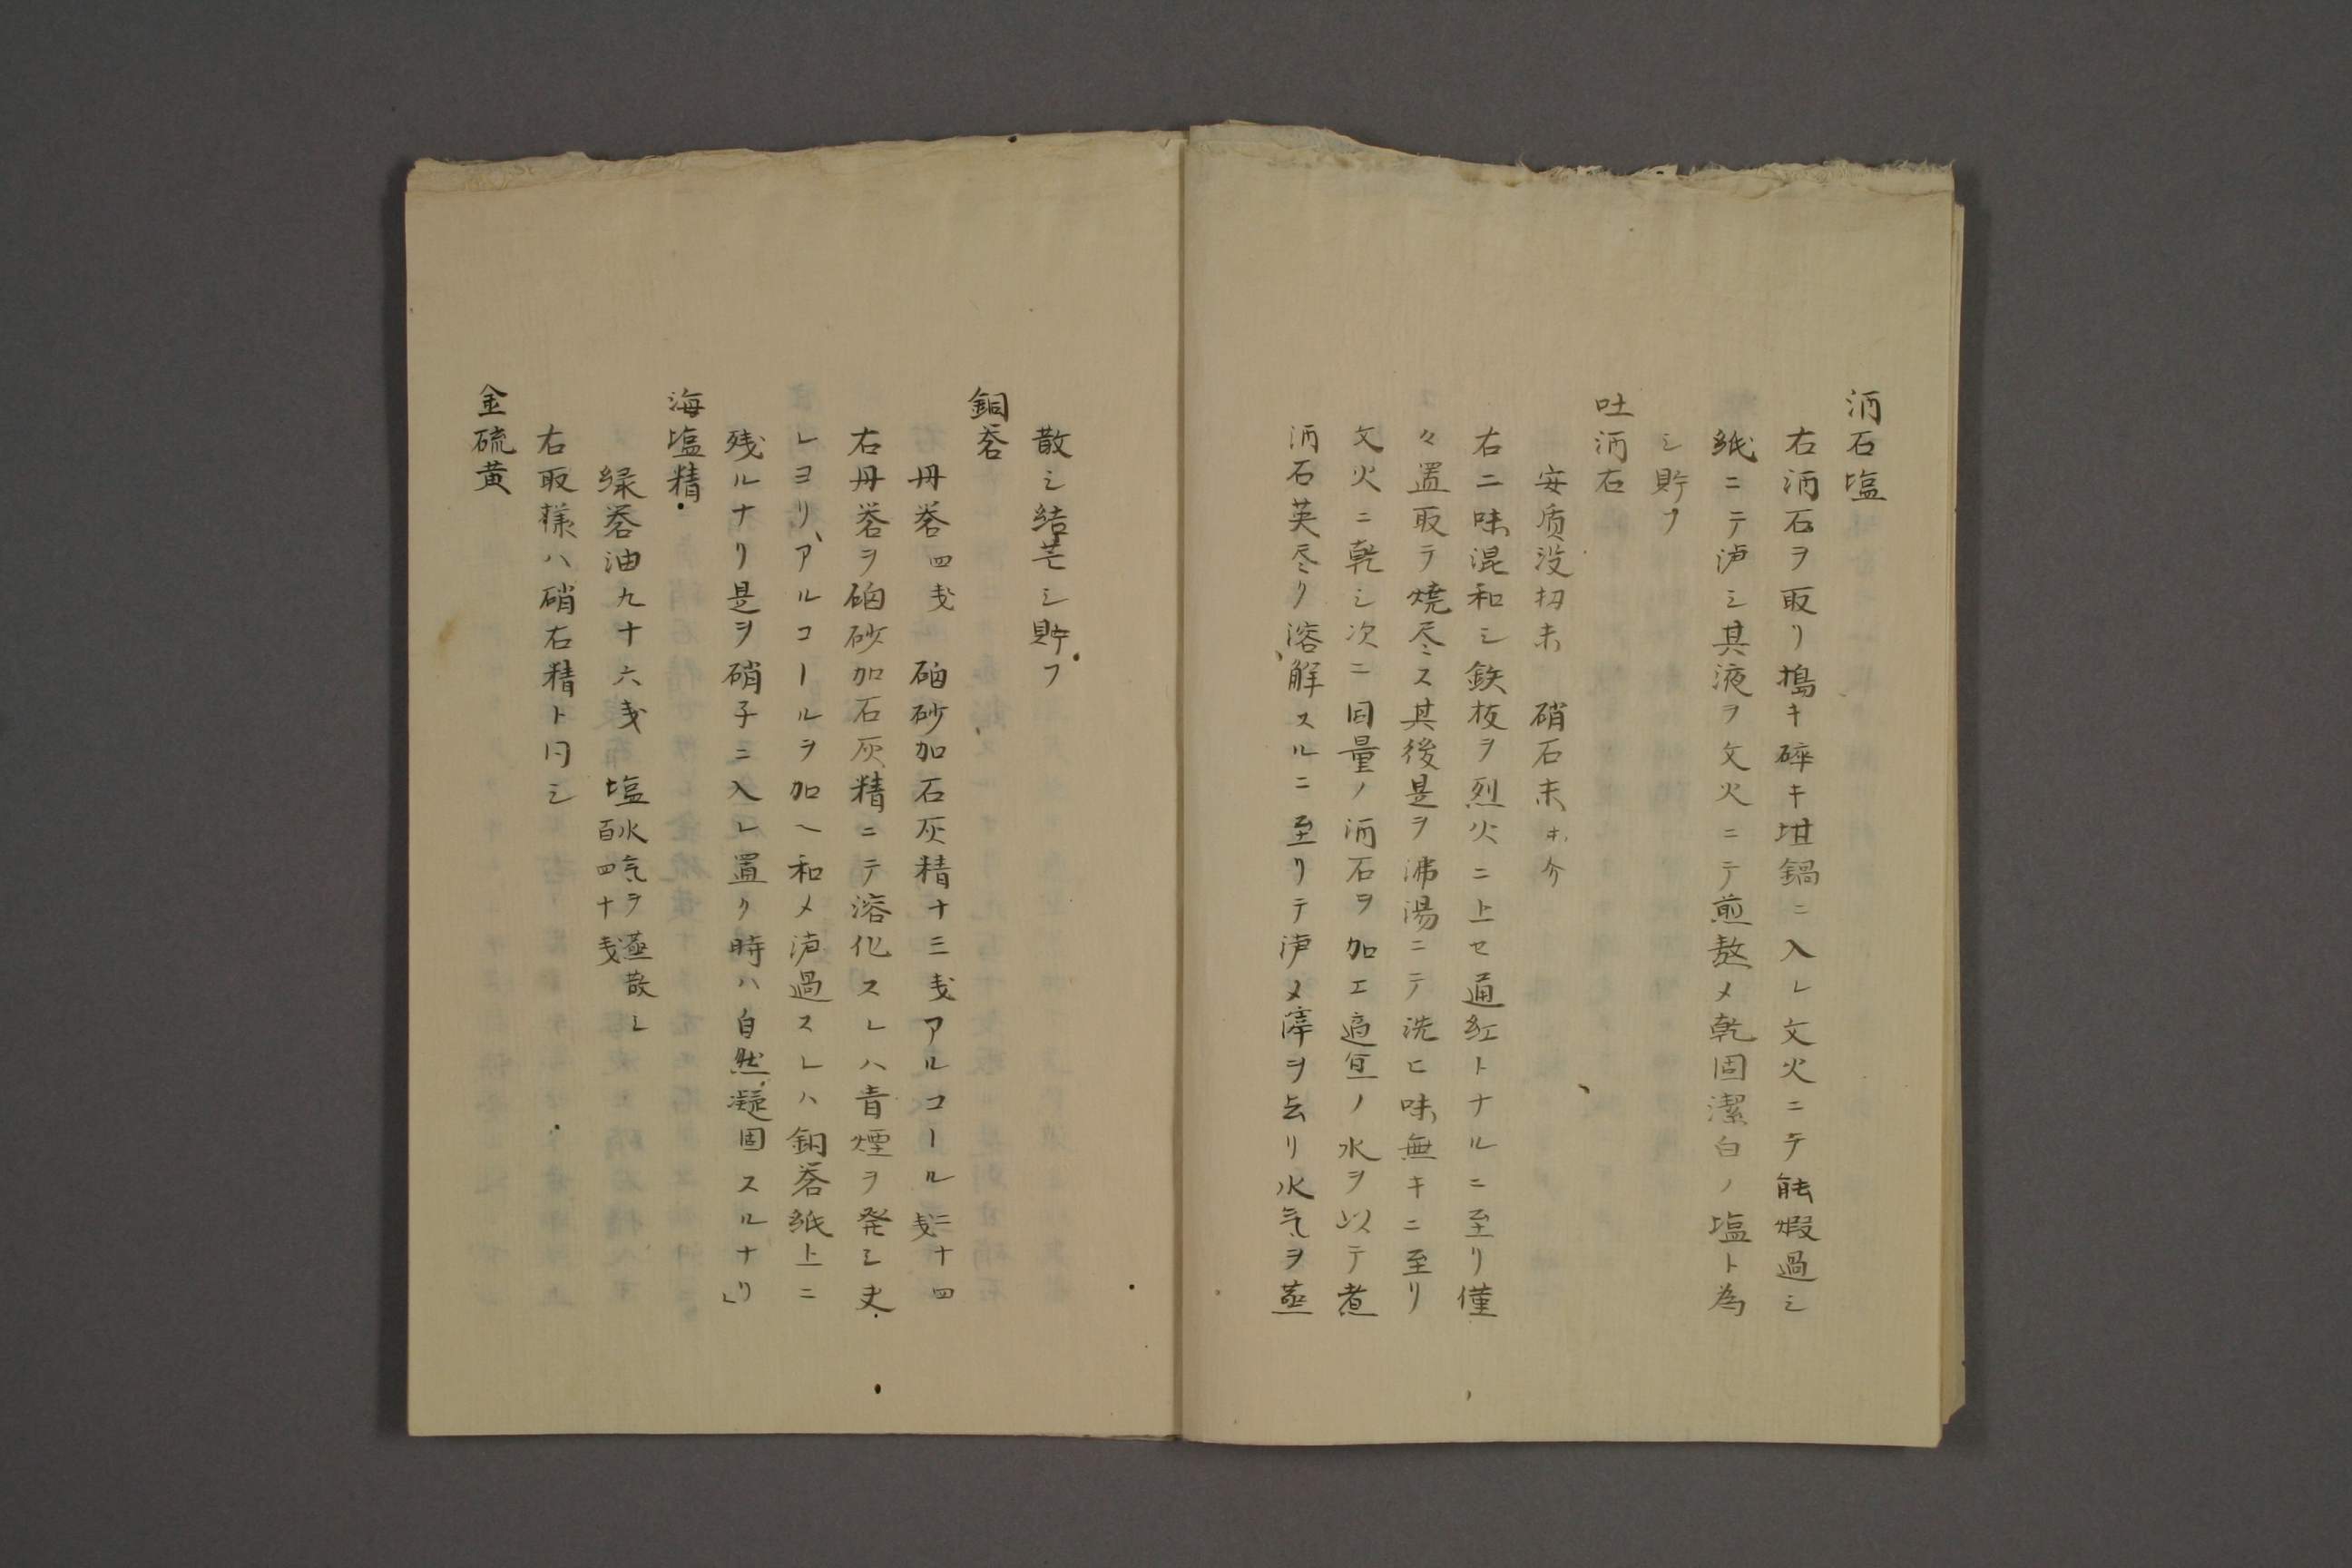 酒石塩
右酒石ヲ取リ搗キ碎キ坩鍋ニ入レ文火ニテ能煆過シ
紙ニテ濾シ其液ヲ文火ニテ煎熬メ乾固潔白ノ塩ト為
シ貯フ
吐酒石
安质没扨末　硝石末 ホ分
右二味混和シ鉄板ヲ烈火ニ上セ通紅トナルニ至リ僅
々置取テ焼尽ス其後是ヲ沸湯ニテ洗ヒ味無キニ至リ
文火ニ乾シ次ニ同量ノ酒石ヲ加エ適宜ノ水ヲ以テ煮
酒石英尽ク溶解スルニ至リテ濾メ滓ヲ去リ水气ヲ蒸
散シ結芒シ貯フ
銅礬
丹礬四戔　硇砂加石灰精十三戔アルコール二十四戔
右丹礬ヲ硇砂加石灰精ニテ溶化スレハ青煙ヲ発シ夫
レヨリアルコールヲ加ヘ和メ濾過スレハ銅礬紙上ニ
残ルナリ是ヲ硝子ニ入レ置ク時ハ自然凝固スルナリ」
海塩精
緑礬油九十六戔　塩水气ヲ蒸散シ百四十戔
右取様ハ硝石精ト同シ
金硫黄